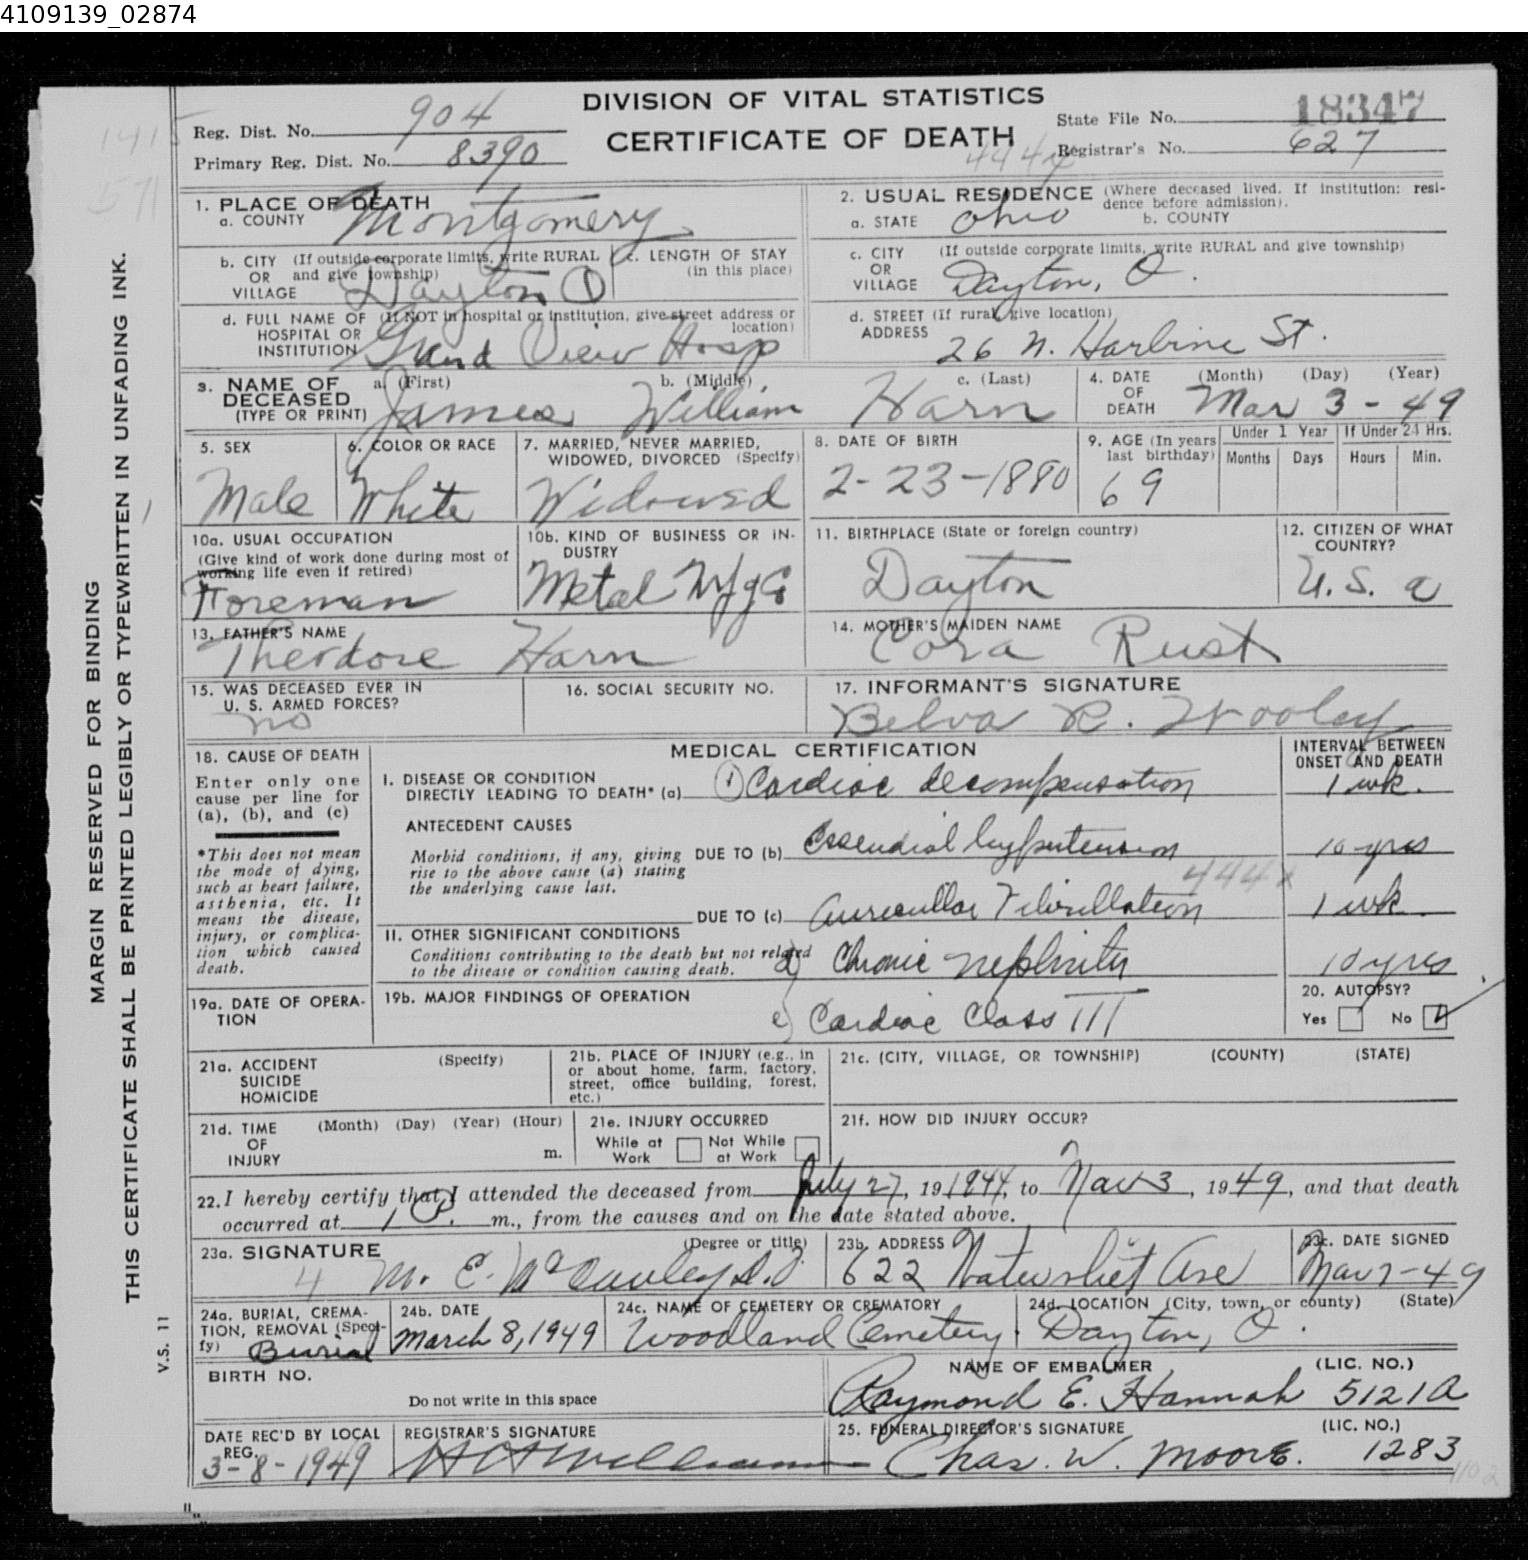 4109139_02874
DIVISION OF VITAL STATISTICS
CERTIFICATE OF DEATH
Reg. Dist. No. 904
Primary Reg. Dist. No. 8390
State File No. 18347
Registrar's No. 627
1415
571
444x
MARGIN RESERVED FOR BINDING
THIS CERTIFICATE SHALL BE PRINTED LEGIBLY OR TYPEWRITTEN IN UNFADING INK.
V.S. 11
1. PLACE OF DEATH
a. COUNTY Montgomery
2. USUAL RESIDENCE (Where deceased lived. If institution: resi-
dence before admission).
a. STATE Ohio b. COUNTY
b. CITY (If outside corporate limits, write RURAL
OR and give township)
VILLAGE Dayton O
c. LENGTH OF STAY
(in this place)
c. CITY (If outside corporate limits, write RURAL and give township)
OR
VILLAGE Dayton, O.
d. FULL NAME OF (If NOT in hospital or institution, give street address or
HOSPITAL OR location)
INSTITUTION Grand View Hosp
d. STREET (If rural, give location)
ADDRESS 26 N. Harbine St.
3. NAME OF a. (First) b. (Middle) c. (Last)
DECEASED
(TYPE OR PRINT) James William Harn
4. DATE (Month) (Day) (Year)
OF
DEATH Mar 3 - 49
5. SEX
Male
6. COLOR OR RACE
White
7. MARRIED, NEVER MARRIED,
WIDOWED, DIVORCED (Specify)
Widowed
8. DATE OF BIRTH
2-23-1880
9. AGE (In years
last birthday)
69
Under 1 Year If Under 24 Hrs.
Months Days Hours Min.
10a. USUAL OCCUPATION
(Give kind of work done during most of
working life even if retired)
Foreman
10b. KIND OF BUSINESS OR IN-
DUSTRY
Metal Mfg
11. BIRTHPLACE (State or foreign country)
Dayton
12. CITIZEN OF WHAT
COUNTRY?
U.S. a
13. FATHER'S NAME
Theodore Harn
14. MOTHER'S MAIDEN NAME
Cora Rust
15. WAS DECEASED EVER IN
U. S. ARMED FORCES?
no
16. SOCIAL SECURITY NO.
17. INFORMANT'S SIGNATURE
Belva R. Wooley
18. CAUSE OF DEATH
Enter only one
cause per line for
(a), (b), and (c)
*This does not mean
the mode of dying,
such as heart failure,
asthenia, etc. It
means the disease,
injury, or complica-
tion which caused
death.
MEDICAL CERTIFICATION
INTERVAL BETWEEN
ONSET AND DEATH
I. DISEASE OR CONDITION
DIRECTLY LEADING TO DEATH* (a) 1 Cardiac decompensation 1 wk.
ANTECEDENT CAUSES
Morbid conditions, if any, giving
rise to the above cause (a) stating
the underlying cause last.
DUE TO (b) Essential hypertension 10 yrs
444x
DUE TO (c) Auricular Fibrillation 1 wk.
II. OTHER SIGNIFICANT CONDITIONS
Conditions contributing to the death but not related
to the disease or condition causing death.
d) Chronic nephritis 10 yrs
19a. DATE OF OPERA-
TION
19b. MAJOR FINDINGS OF OPERATION
e) Cardiac Class III
20. AUTOPSY?
Yes No
21a. ACCIDENT (Specify)
SUICIDE
HOMICIDE
21b. PLACE OF INJURY (e.g., in
or about home, farm, factory,
street, office building, forest,
etc.)
21c. (CITY, VILLAGE, OR TOWNSHIP) (COUNTY) (STATE)
21d. TIME (Month) (Day) (Year) (Hour)
OF
INJURY m.
21e. INJURY OCCURRED
While at Work Not While at Work
21f. HOW DID INJURY OCCUR?
22. I hereby certify that I attended the deceased from July 27, 19 1944, to Mar 3, 19 49, and that death
occurred at 1 P. m., from the causes and on the date stated above.
23a. SIGNATURE (Degree or title)
M. E. McCauley D.O.
23b. ADDRESS
622 Watervliet Ave
23c. DATE SIGNED
Mar 7-49
24a. BURIAL, CREMA-
TION, REMOVAL (Speci-
fy) Burial
24b. DATE
March 8, 1949
24c. NAME OF CEMETERY OR CREMATORY
Woodland Cemetery.
24d. LOCATION (City, town, or county) (State)
Dayton, O.
BIRTH NO.
Do not write in this space
NAME OF EMBALMER (LIC. NO.)
Raymond E. Hannah 5121A
DATE REC'D BY LOCAL
REG.
3-8-1949
REGISTRAR'S SIGNATURE
25. FUNERAL DIRECTOR'S SIGNATURE (LIC. NO.)
Chas. W. Moore. 1283